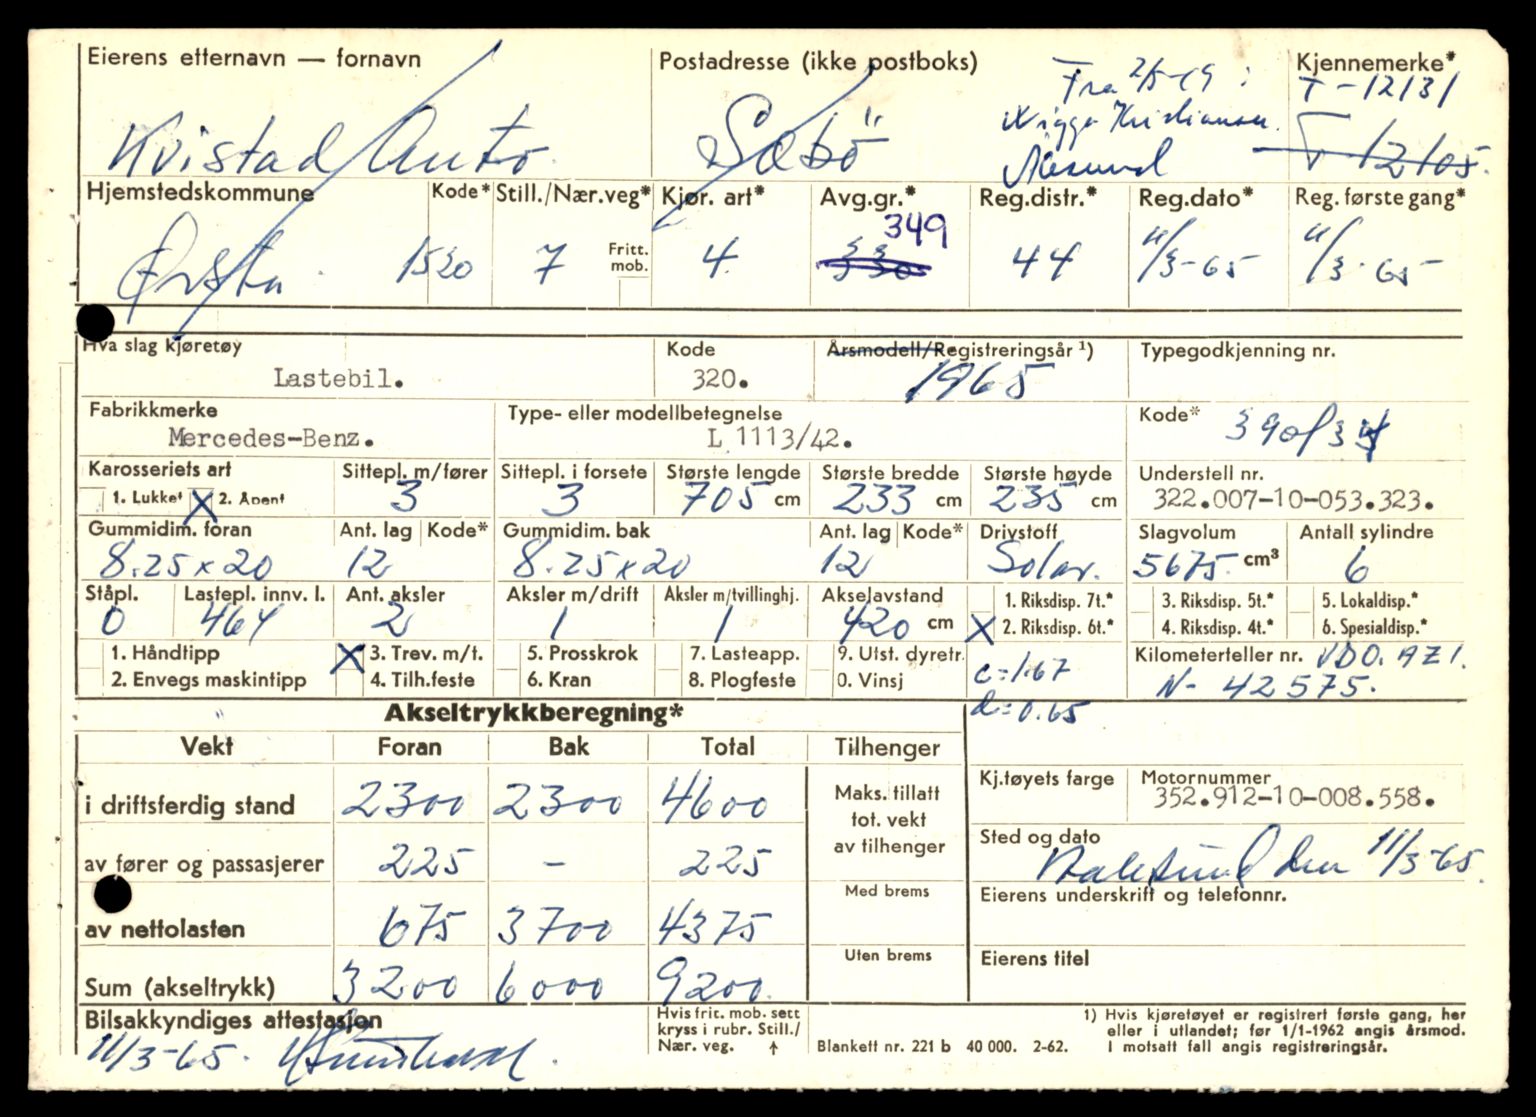 Eierens etternavn — fornavn Postadresse (ikke postboks) Kjennemerke*
Fra 2/5-69 : T-12131
Kvistad Anto Sæbö Viggo Kristiansen T 12105.
Ålesund
Hjemstedskommune Kode* Still./Nær.veg* Kjør. art* Avg.gr.* Reg.distr.* Reg.dato* Reg. første gang*
349
Ørsta 1520 7 Fritt. mob. 4 330 44 11/3-65 11/3-65
Hva slag kjøretøy Kode Årsmodell/Registreringsår ¹) Typegodkjenning nr.
Lastebil. 320. 1965
Fabrikkmerke Type- eller modellbetegnelse Kode*
Mercedes-Benz. L 1113/42. 390/34
Karosseriets art Sittepl. m/fører Sittepl. i forsete Største lengde Største bredde Største høyde Understell nr.
1. Lukket X 2. Åpent 3 3 705 cm 233 cm 235 cm 322.007-10-053.323.
Gummidim. foran Ant. lag Kode* Gummidim. bak Ant. lag Kode* Drivstoff Slagvolum Antall sylindre
8.25x20 12 8.25x20 12 Solar. 5675 cm³ 6
Ståpl. Lastepl. innv. l. Ant. aksler Aksler m/drift Aksler m/tvillinghj. Akselavstand 1. Riksdisp. 7t.* 3. Riksdisp. 5t.* 5. Lokaldisp.*
0 464 2 1 1 420 cm X 2. Riksdisp. 6t.* 4. Riksdisp. 4t.* 6. Spesialdisp.*
1. Håndtipp X 3. Trev. m/t. 5. Prosskrok 7. Lasteapp. 9. Utst. dyretr. c=1.67 Kilometerteller nr. VDO. AZ1.
2. Envegs maskintipp 4. Tilh.feste 6. Kran 8. Plogfeste 0. Vinsj N- 42575.
Akseltrykkberegning* d=0.65
Vekt Foran Bak Total Tilhenger
Kj.tøyets farge Motornummer
i driftsferdig stand 2300 2300 4600 Maks. tillatt tot. vekt av tilhenger 352.912-10-008.558.
Sted og dato
av fører og passasjerer 225 - 225 Aalesund den 11/3-65.
Med brems Eierens underskrift og telefonnr.
av nettolasten 675 3700 4375
Uten brems Eierens titel
Sum (akseltrykk) 3200 6000 9200
Bilsakkyndiges attestasjon Hvis frit. mob. sett kryss i rubr. Still./ Nær. veg. ↑ 1) Hvis kjøretøyet er registrert første gang, her
eller i utlandet; før 1/1-1962 angis årsmod.
11/3-65. Blankett nr. 221 b 40 000. 2-62. I motsatt fall angis registreringsår.